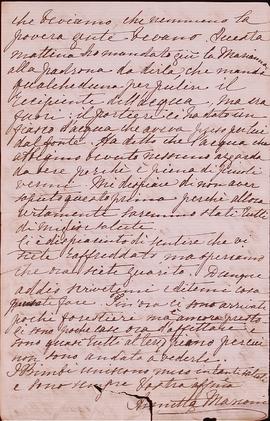 che beviamo che nemmeno la
povera gente bevano. Questa
mattina ho mandato giù la Marianna
alla padrona da dirla, che mandi
qualcheduno per pulire il
recipiente dell'acqua, ma era
fuori: il portiere ci ha dato un
fiasco d'acqua che aveva preso per lui
dal fonte. Ha detto che l'acqua che
abbiamo bevuto nessuno
da bere perchè è piena di piccoli
vermi. Mi dispiace di non aver
saputo questo prima perchè allora
certamente saremmo state tutti
di miglior salute.
Ci è dispiaciuto di sentire che vi
siete raffreddato ma speriamo
che ora siete guarito. Dunque
addio scrivetemi e ditemi cosa
fare. Per ora ci sono arrivati
pochi forestieri ma ancora presto
ci sono poche case ora d'affittare e
sono quasi tutti al terzo piano perciò
non sono andata a vederle.
I Bimbi uniscono miei tanti saluti
e sono sempre vostra